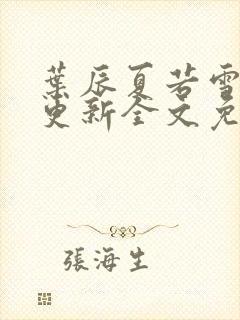 葉辰夏若雪
更新全文免
張海生